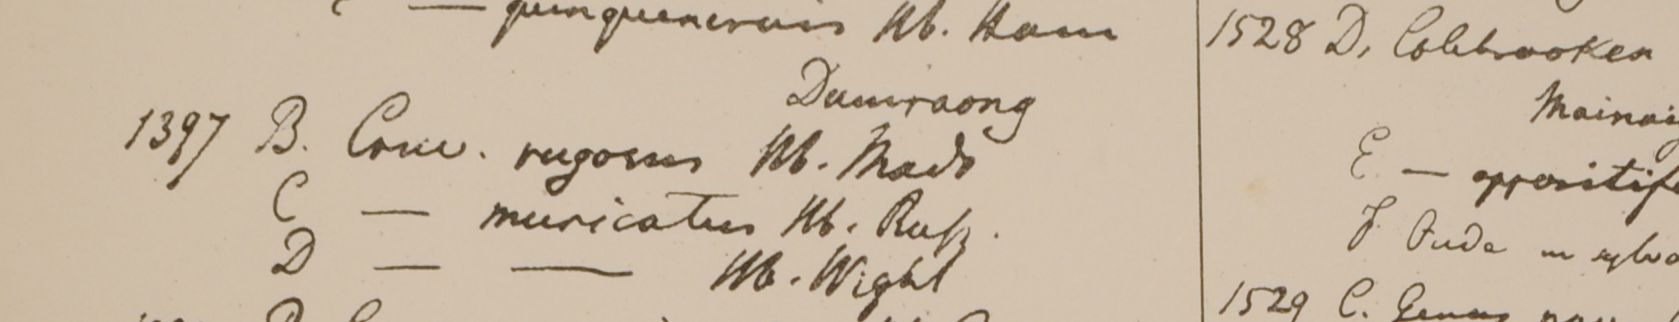 — quinquenervis Hb. Ham
Dumraong
1397 B. Conv. rugosus Hb. Mads
C — muricatus Hb. Ruß.
D — — Hb. Wight
1528 D. Colebrookea
E — oppositif
F Oude in sylva
1529 C. Genus nov